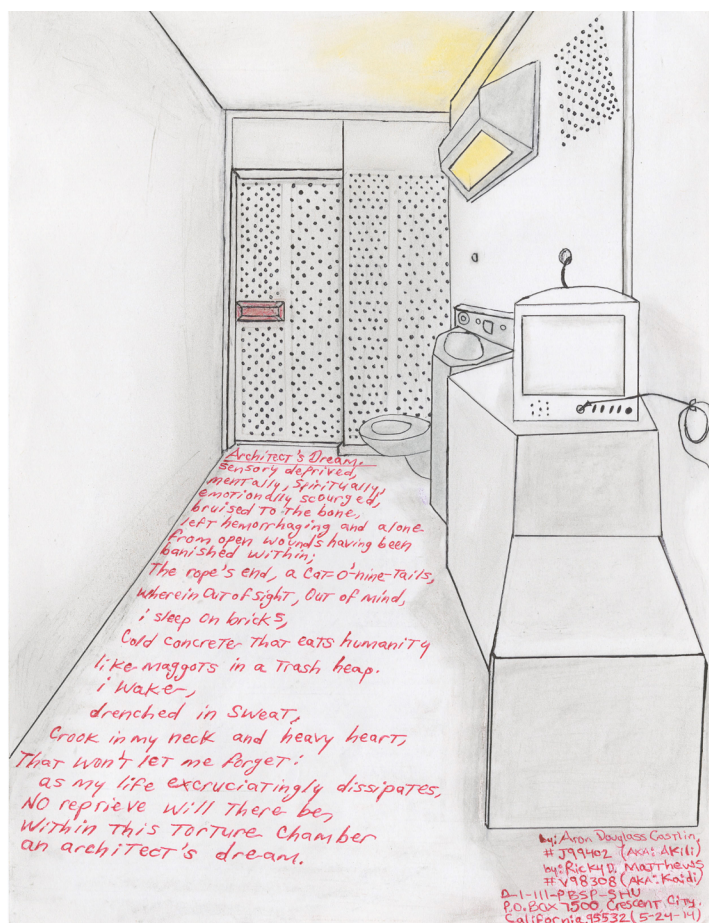 Architect's Dream.
sensory deprived,
mentally, spiritually,
emotionally scourged,
bruised to the bone,
left hemorrhaging and alone
from open wounds having been
banished within;
The rope's end, a Cat-O'-nine-Tails,
wherein out of sight, out of mind,
i sleep on bricks,
Cold concrete that eats humanity
like maggots in a Trash heap.
i wake,
drenched in sweat,
Crook in my neck and heavy heart,
That won't let me forget:
as my life excruciatingly dissipates,
NO reprieve will There be,
Within This Torture Chamber
an architect's dream.
by: Aron Douglass Castlin,
# J99402 (AKA: Akili)
by: Ricky D. Matthews
# V98308 (AKA: Kaidi)
D-1-111-PBSP-SHU
P.O. Box 7500, Crescent City,
California 95532 (5-24-14)